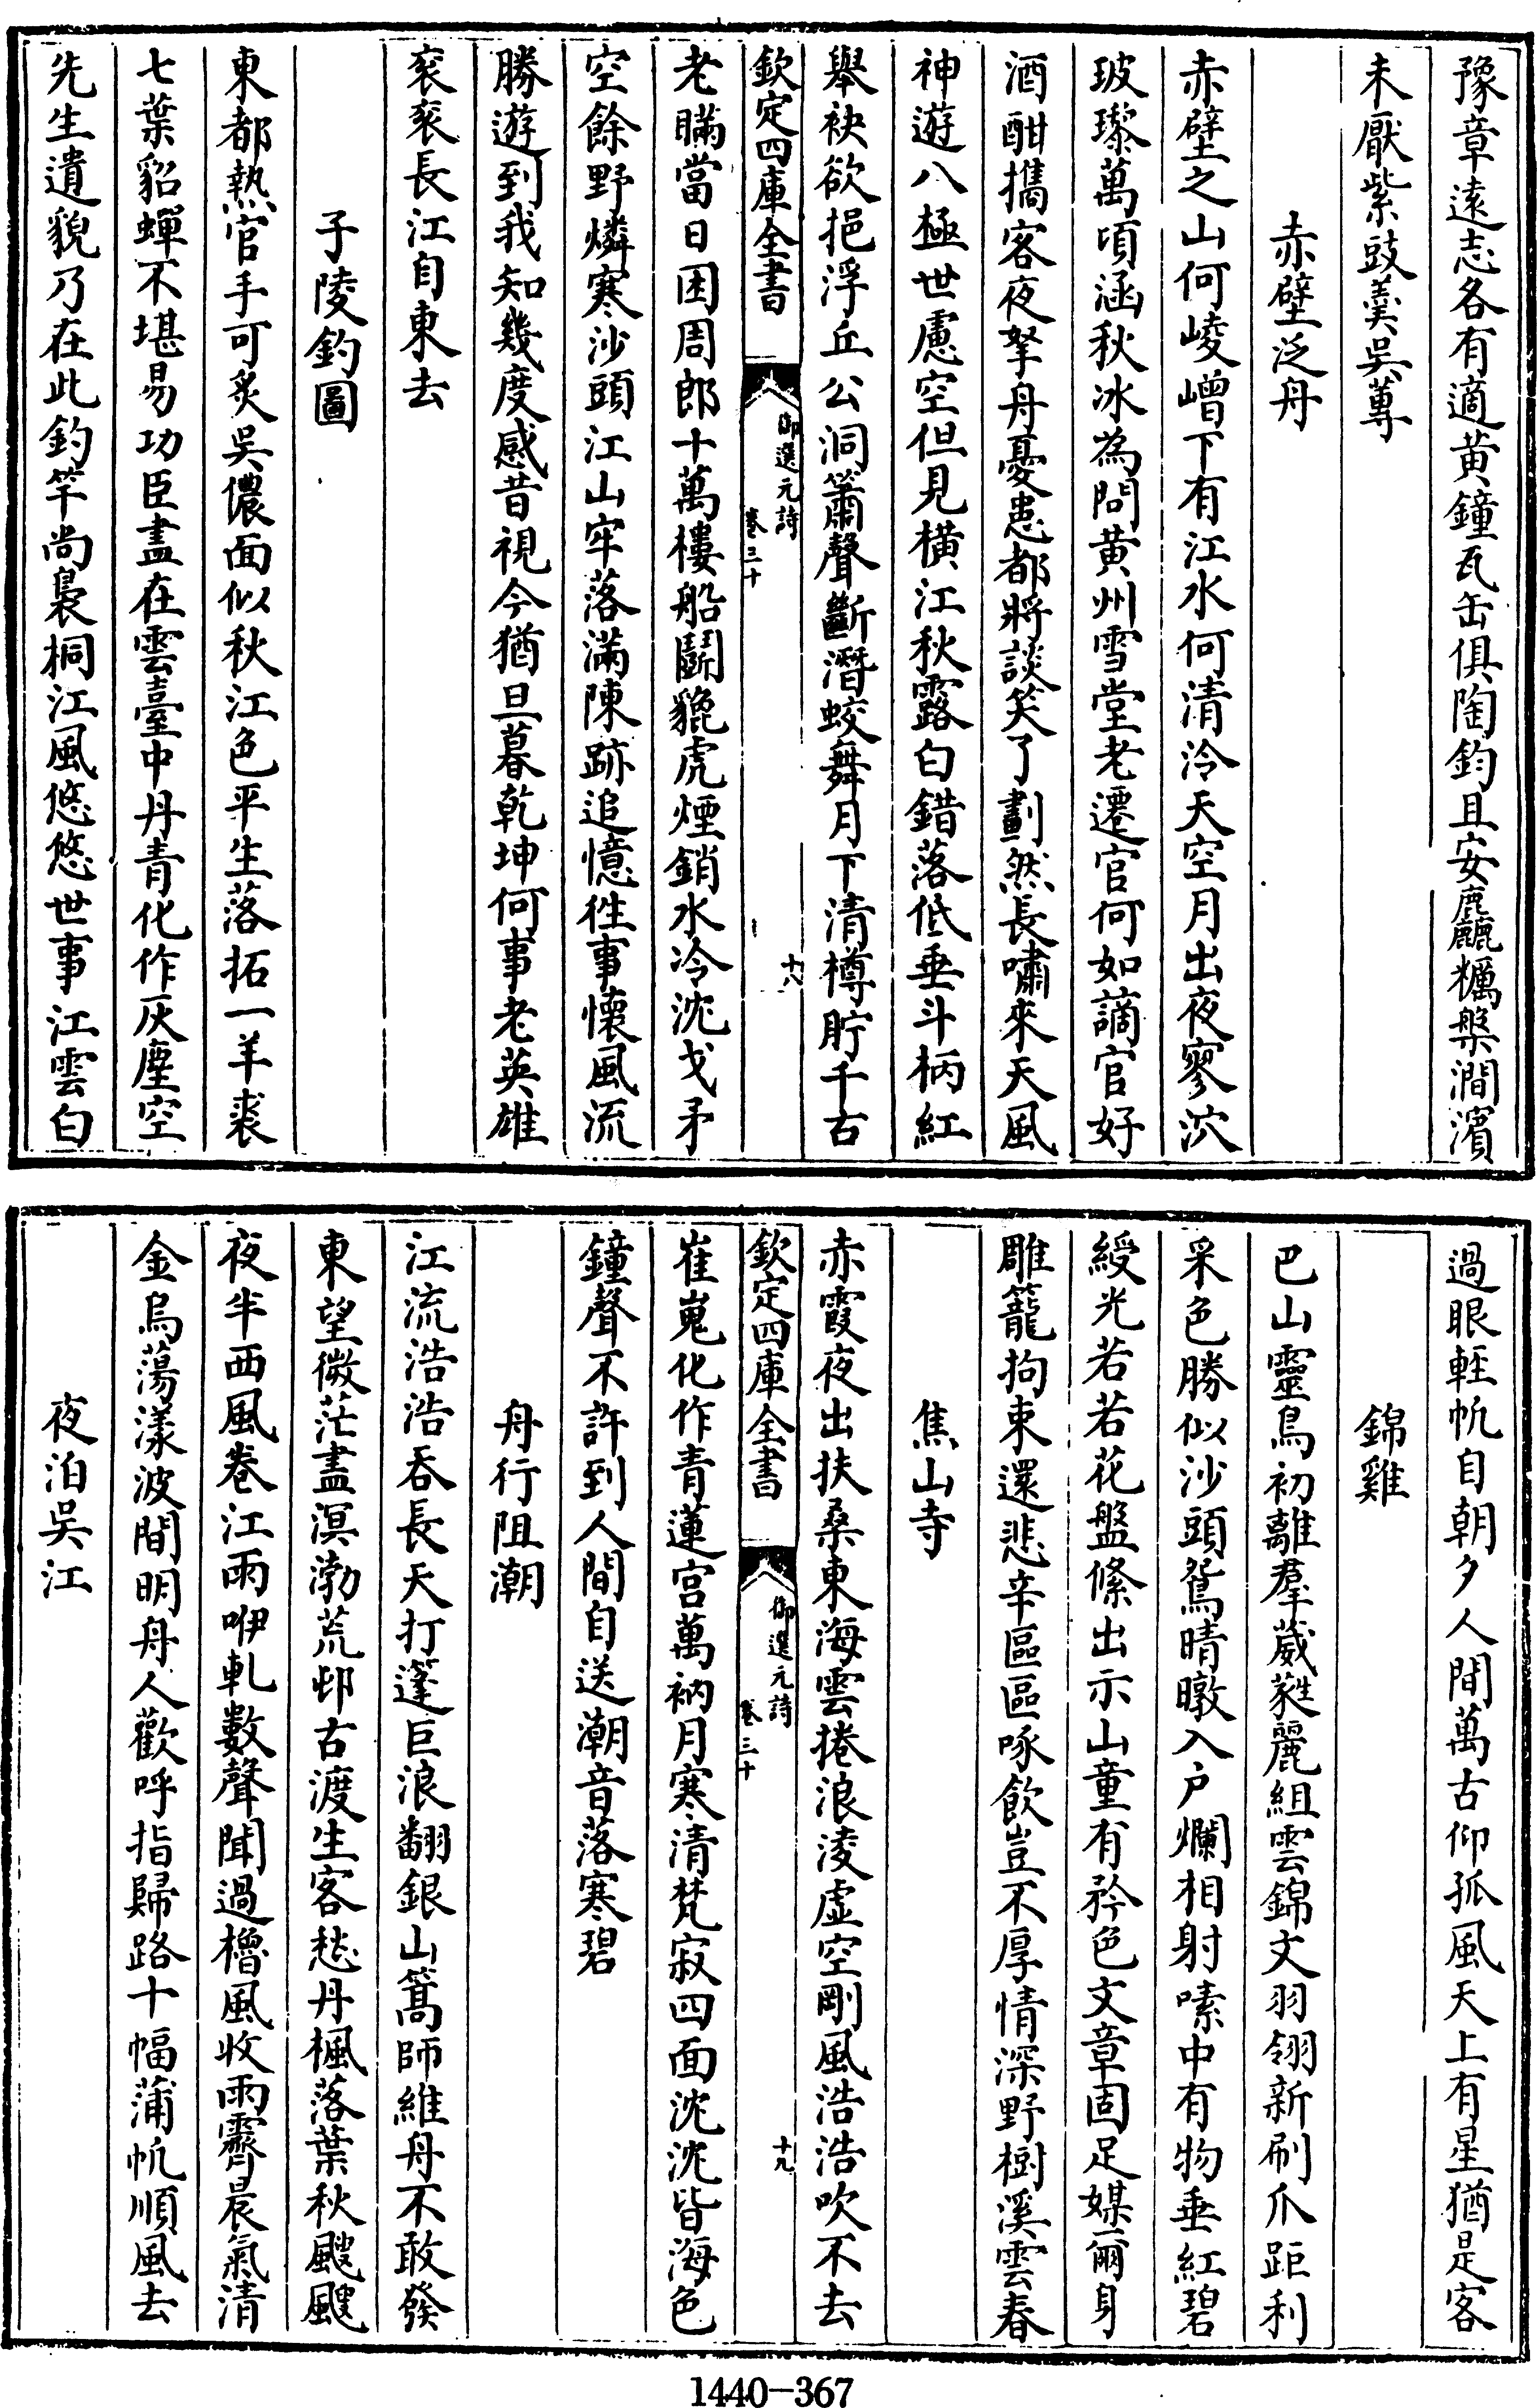 豫章遠志各有適黄鐘瓦缶俱陶鈞且安麤糲槃澗濱
未厭紫豉羮吳蓴
赤壁泛舟
赤壁之山何崚嶒下有江水何清泠天空月出夜寥泬
玻瓈萬頃涵秋冰為問黄州雪堂老遷官何如謫官好
酒酣攜客夜拏舟憂患都將談笑了劃然長嘯來天風
神遊八極世慮空但見橫江秋露白錯落低垂斗柄紅
舉袂欲挹浮丘公洞簫聲斷潛蛟舞月下清樽貯千古
欽定四庫全書
御選元詩
卷三十
十八
老瞞當日困周郎十萬樓船鬬貔虎煙銷水冷沈戈矛
空餘野燐寒沙頭江山牢落滿陳跡追憶徃事懷風流
勝遊到我知幾度感昔視今猶旦暮乾坤何事老英雄
衮衮長江自東去
子陵釣圖
東都熱官手可炙吳儂面似秋江色平生落拓一羊裘
七葉貂蟬不堪易功臣盡在雲臺中丹青化作灰塵空
先生遺貌乃在此釣竿尚裊桐江風悠悠世事江雲白
過眼輊帆自朝夕人間萬古仰孤風天上有星猶是客
錦雞
巴山靈鳥初離羣葳蕤麗組雲錦文羽翎新刷爪距利
采色勝似沙頭鴛晴暾入户爛相射嗉中有物垂紅碧
綬光若若花盤絛出示山童有矜色文章固足媒爾身
雕籠拘束還悲辛區區啄飲豈不厚情深野樹溪雲春
焦山寺
赤霞夜出扶桑東海雲捲浪淩虛空剛風浩浩吹不去
欽定四庫全書
御選元詩
卷三十
十九
崔嵬化作青蓮宫萬衲月寒清梵寂四面沈沈皆海色
鐘聲不許到人間自送潮音落寒碧
舟行阻潮
江流浩浩吞長天打篷巨浪翻銀山篙師維舟不敢發
東望微茫盡溟渤荒邨古渡生客愁丹楓落葉秋颼颼
夜半西風巻江雨咿軋數聲聞過櫓風收雨霽晨氣清
金烏蕩漾波間明舟人歡呼指歸路十幅蒲帆順風去
夜泊吳江
1440-367